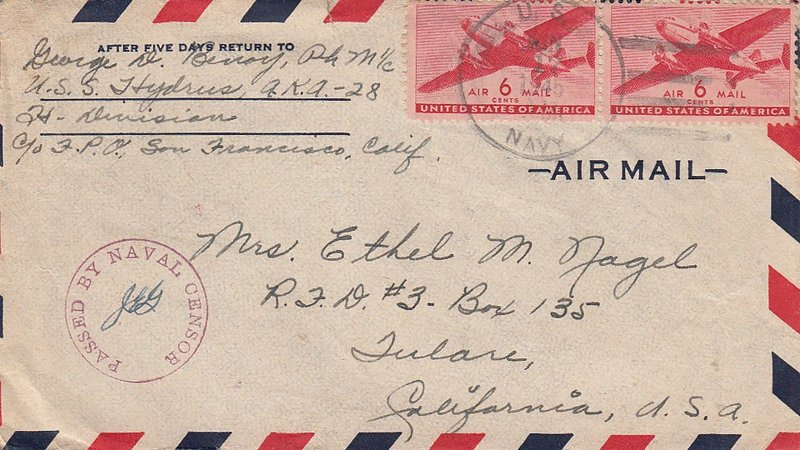 AFTER FIVE DAYS RETURN TO
George D. Benoy, Ph M 1/c
U.S.S. Hydrus, A.K.A.-28
H- Division
C/o F.P.O, San Francisco, Calif.
AIR 6 MAIL
CENTS
UNITED STATES OF AMERICA
AIR 6 MAIL
CENTS
UNITED STATES OF AMERICA
U.S.
NAVY
AIR MAIL
Mrs. Ethel M. Nagel
R.F.D. #3- Box 135
Tulare,
California, U.S.A.
PASSED BY NAVAL CENSOR